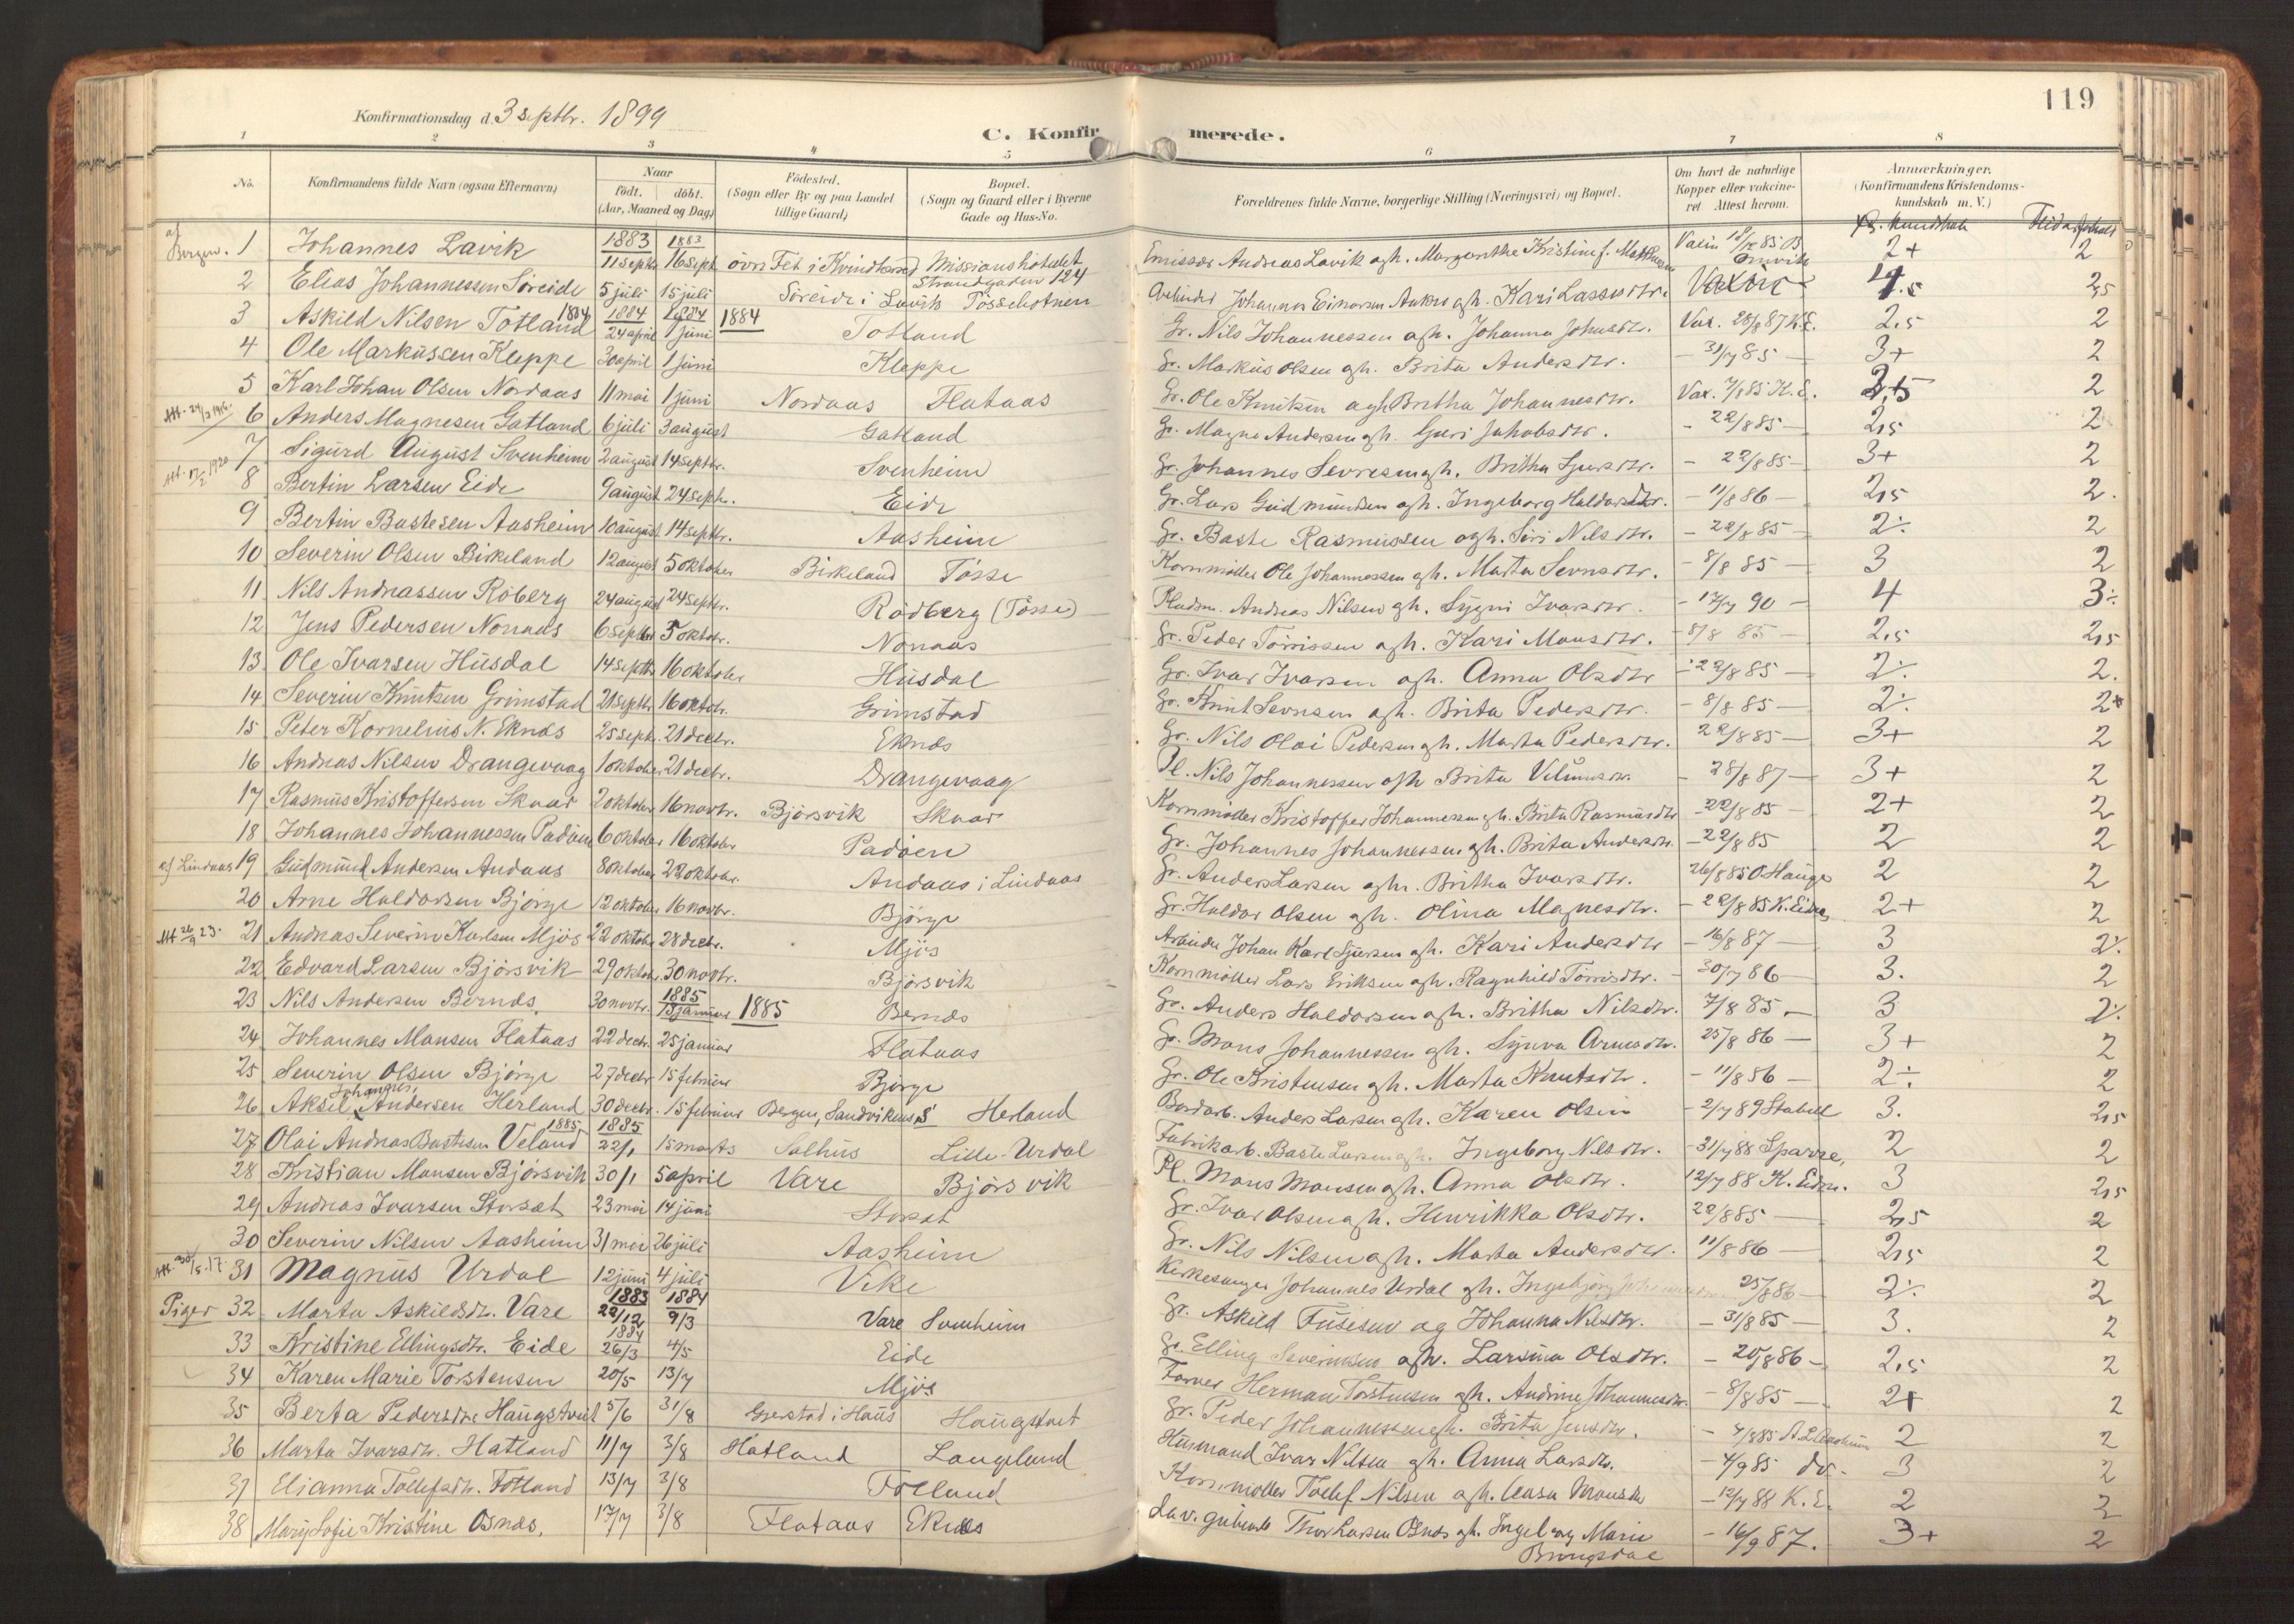 119
Konfirmationsdag d. 3 septbr. 1899
C. Konfirmerede.
1 2 3 4 5 6 7 8
No. Konfirmandens fulde Navn (ogsaa Efternavn) Naar født. døbt. (Aar, Maaned og Dag) Fødested. (Sogn eller By og paa Landet tillige Gaard) Bopæl. (Sogn og Gaard eller i Byerne Gade og Hus-No. Forældrenes fulde Navne, borgerlige Stilling (Næringsvei) og Bopæl. Om havt de naturlige Kopper eller vakcineret. Attest herom. Anmærkninger. (Konfirmandens Kristendomskundskab m. V.)
af Bergen. 1 Johannes Lavik 1883 11 septbr 1883 16 sept. övre Feb i Kvindherred Missionshotellet Strandgaden 124 Emissær Andreas Lavik og h. Margarethe Kristine f. 2+ 2
2 Elias Johannessen Söreide 5 juli 15 juli Söreide i Lavik Tössebotnen Arbeider Johannes Einarsen og h. Kari Lassesdtr. 4.5 2,5
3 Askild Nilsen Totland 1884 1884 24 april 1884 1 juni 1884 Totland Gr. Nils Johannessen og h. Johanna Johnsdtr. Vax. 28/8 87 K.E. 2.5 2
4 Ole Markussen Kleppe 30 april 1 juni Kleppe Gr. Markus Olsen og h. Brita Andersdtr. — 31/7 85 — 3+ 2
5 Karl Johan Olsen Nordaas 11 mai 1 juni Nordaas Flataas Gr. Ole Knutsen og h. Britha Johannesdtr. Vax. 7/8 85 K.E. 2
Att. 24/3 1916. 6 Anders Magnesen Gatland 6 juli 3 august Gatland Gr. Magne Andersen og h. Guri Jakobsdtr. - 22/8 85 — 2,5 2
7 Sigurd August Svenheim 2 august 14 septbr. Svenheim Gr. Johannes Sevresen og h. Britha Sjursdtr. - 22/8 85 — 3+ 2
Att. 17/2 1920 8 Bertin Larsen Eide 9 august 24 sept. Eide Gr. Lars Gudmundsen og h. Ingeborg Haldorsdtr. - 11/8 86 — 2,5 2.
9 Bertin Bastesen Aasheim 10 august 14 septbr. Aasheim Gr. Baste Rasmussen og h. Siri Nilsdtr. - 22/8 85 — 2÷ 2
10 Severin Olsen Birkeland 12 august 5 oktober Birkeland Tösse Kornmöller Ole Johannessen og h. Marta Sevrisdtr. - 8/8 85 — 3 2
11 Nils Andreassen Röberg 24 august 24 septbr. Rödberg (Tösse) Pladsm. Andreas Nilsen og h. Sygni Ivarsdtr. - 17/7 90 — 4 3÷
12 Jens Pedersen Nonaas 6 septbr 5 oktobr. Nonaas Gr. Peder Törrissen og h. Kari Monsdtr. - 8/8 85 — 2,5 2,5
13 Ole Ivarsen Husdal 14 septbr 16 oktober Husdal Gr. Ivar Ivarsen og h. Anna Olsdtr - 22/8 85 — 2÷ 2.
14 Severin Knutsen Grimstad 21 septbr 16 oktobr. Grimstad Gr. Knut Sevrisen og h. Brita Pedersdtr. - 8/8 85 — 2÷ 2+
15 Peter Kornelius N. Eknæs 25 sept. 21 decbr. Eknæs Gr. Nils Olai Pedersen og h. Marta Pedersdtr. 22/8 85 — 3+ 2
16 Andreas Nilsen Drangevaag 1 oktober 21 decbr. Drangevaag Pl. Nils Johannessen og h. Brita - 28/8 87 — 3+ 2
17 Rasmus Kristoffersen Skaar 2 oktober 16 novbr. Bjørsvik Skaar Kornmöller Kristoffer Johannessen og h. Brita Rasmusdtr - 22/8 85 — 2+ 2
18 Johannes Johannessen Padöen 6 oktober 16 oktober Padöen Gr. Johannes Johannessen og h. Brita Andersdtr. - 22/8 85 2 2
af Lindaas 19 Gudmund Andersen Andaas 8 oktober 22 oktobr. Andaas i Lindaas Gr. Anders Larsen og h. Britha Ivarsdtr. 26/8 85 O. Hauge 2 2
20 Arne Haldorsen Bjørge 12 oktober 16 novbr. Björge Gr. Haldor Olsen og h. Olina Magnesdtr. - 22/8 85 K. Eidnes 2+ 2
Att 26/9 23. 21 Andreas Severin Karlsen Mjös 22 oktobr 28 decbr. Mjös Arbeider Johan Karl Sjursen og h. Kari Andersdtr - 16/8 87 — 3 2÷
22 Edvard Larsen Bjørsvik 29 oktobr. 30 novbr. Björsvik Kornmöller Lars Eriksen og h. Ragnhild Törrisdtr. - 30/7 86 — 3. 2
23 Nils Andersen Bernæs. 30 novbr. 1885 18 januar 1885 Bernæs Gr. Anders Haldorsen og h. Britha Nilsdtr. 7/8 85. — 3 2÷
24 Johannes Monsen Flataas 22 decbr. 25 januar Flataas Gr. Mons Johannessen og h. Synva Arnesdtr. 25/8 86 — 3+ 2
25 Severin Olsen Björge 27 decbr 15 februar Björge Gr. Ole Kristensen og h. Marta Knutsdtr. - 11/8 86 — 2÷ 2
26 Aksel Johannes Andersen Herland 30 decbr. 15 februar Bergen, Sandvikens S. Herland Bordarb. Anders Larsen og h. Karen Olsen - 2/7 89 Stabell 3. 2,5
27 Olai Andreas Bastesen Veland 1885 1885 22/1 15 marts Salhus Lille-Urdal Fabrikarb. Baste Larsen og h. Ingeborg Nilsdtr. - 31/7 88 Sparre, 2 2
28 Kristian Monsen Bjørsvik 30/1 5 april Vare Björsvik Pl. Mons Monsen og h. Anna Olsdtr. 12/7 88 K. Eidn. 3 2,5
29 Andreas Ivarsen Storsæt 23 mai 14 juni Storsæt Gr. Ivar Olsen og h. Henrikka Olsdtr. 22/8 85 — 2,5 2
30 Severin Nilsen Aasheim 31 mai 26 juli Aasheim Gr. Nils Nilsen og h. Marta Andersdtr. 11/8 86 — 2,5 2
Att. 30/5.17. 31 Magnus Urdal 12 juni 4 juli Vike Kirkesanger Johannes Urdal og h. Ingebjörg 25/8 86 — 2÷ 2
Piger 32 Marta Askildsdtr. Vare 1883 29/12 1884 9/3 Vare Svenheim Gr. Askild Fusesen og Johanna Nilsdtr. - 31/8 85 — 3. 2
33 Kristine Ellingsdtr. Eide 1884 26/3 4/5 Eide Gr. Elling Severinsen og h. Larsina Olsdtr. - 20/8 86 — 2,5 2
34 Karen Marie Torstensen 20/5 13/7 Mjös Farver Herman Torstensen og h. Andrine Johannesdtr. - 8/8 85 — 2+ 2
35 Berta Pedersdtr Haugstvet 5/6 31/8 Gjerstad i Haus Haugstvet Gr. Peder Johannessen og h. Brita Jensdtr. - 7/8 85 2 2
36 Marta Ivarsdtr. Hatland 11/7 3/8 Hatland Langeland Husmand Ivar Nilsen og h. Anna Larsdtr. - 4/9 85 do. 3 2
37 Elianna Tollefsdtr. Totland 13/7 3/8 Totland Kornmöller Tollef Nilsen og h. Monsdtr - 12/7 88 K.E. 2 2
38 Mary Sofie Kristine Osnæs. 17/7 3/8 Flataas Eknæs Thor Larsen Osnæs og h. Ingeborg Marie Bringsdal - 16/9 87. 3+ 2